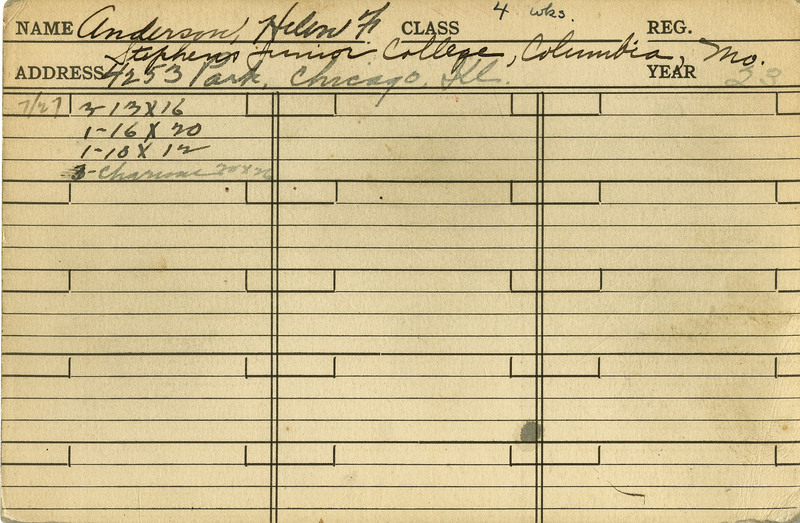 NAME Anderson, Helen F CLASS 4 wks. REG.
Stephens Junior College, Columbia, Mo.
ADDRESS 4253 Park, Chicago, Ill. YEAR 23
7/27 2-12X16
1-16 X 20
1-10 X 12
3-